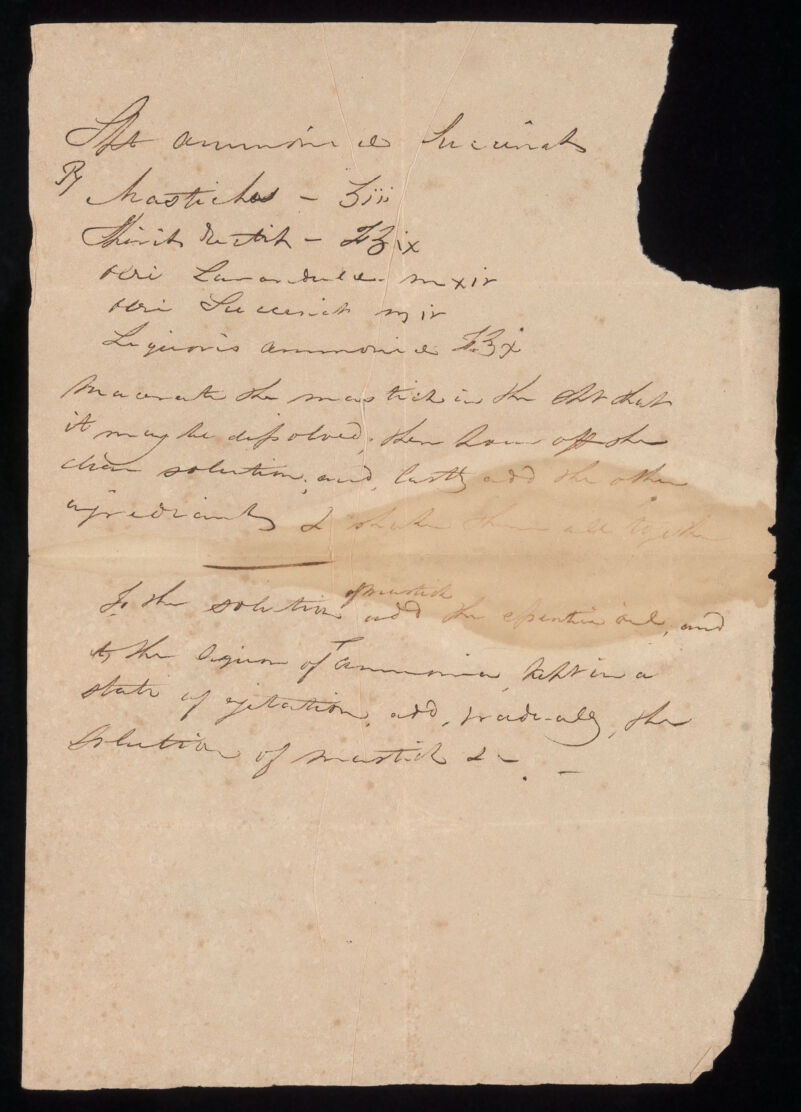 Spt ammoniæ Succinat
℞ Mastiches - ʒiii
Spirit Rectit - fʒix
olei Lavandulæ mxiv
olei Succinat miv
Liquoris ammoniæ f.ʒx
Macerate the mastich in the Spt that
it may be dissolved; then pour off the
clear solution; and, lastly add the other
ingrediants & shake them all together
To the solution of mastich add the essential oil, and
to the liquor of ammonia, kept in a
state of agitation, add, gradually, the
Solution of mastich &c. -